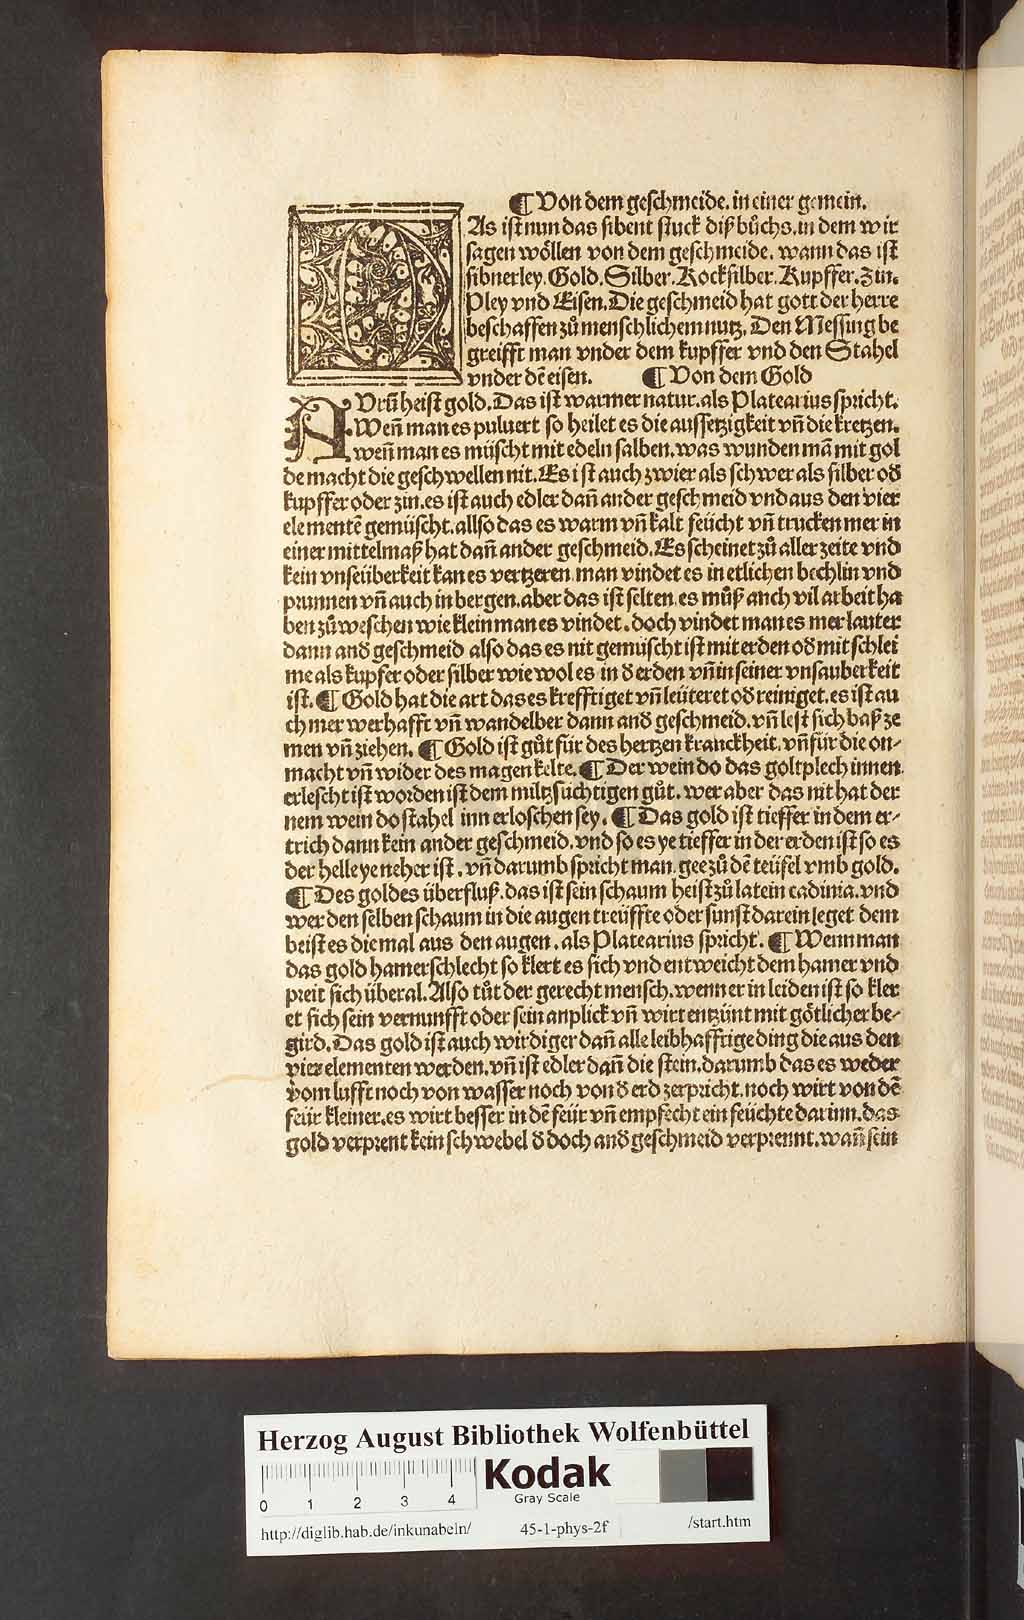 ¶ Von dem geschmeide. in einer gemein.
DAs ist nun das sibent stuck diß bůchs. in dem wir
sagen wöllen von dem geschmeide. wann das ist
sibnerley. Gold. Silber. Kocksilber. Kupffer. Zin.
Pley vnd Eisen. Die geschmeid hat gott der herre
beschaffen zů menschlichem nutz. Den Messing be
greifft man vnder dem kupffer vnd den Stahel
vnder dē eisen. ¶ Von dem Gold
AVrū heist gold. Das ist warmer natur. als Platearius spricht.
Weñ man es puluert so heilet es die aussetzigkeit vñ die kretzen.
weñ man es müscht mit edeln salben. was wunden mā mit gol
de macht die geschwellen nit. Es ist auch zwier als schwer als silber oď
kupffer oder zin. es ist auch edler dañ ander geschmeid vnd aus den vier
elementē gemüscht. allso das es warm vñ kalt feücht vñ trucken mer in
einer mittelmaß hat dañ ander geschmeid. Es scheinet zů aller zeite vnd
kein vnseüberkeit kan es vertzeren. man vindet es in etlichen bechlin vnd
prunnen vñ auch in bergen. aber das ist selten. es můß auch vil arbeit ha
ben zů weschen wie klein man es vindet. doch vindet man es mer lauter
dann anď geschmeid also das es nit gemüscht ist mit erden oď mit schlei
me als kupfer oder silber wie wol es in ď erden vñ in seiner vnsauberkeit
ist. ¶ Gold hat die art das es krefftiget vñ leüteret oď reiniget. es ist au
ch mer werhafft vñ wandelber dann anď geschmeid. vñ lest sich baß ze
men vñ ziehen. ¶ Gold ist gůt für des hertzen kranckheit. vñ für die on-
macht vñ wider des magen kelte. ¶ Der wein do das golt plech innen
erlescht ist worden ist dem miltzsüchtigen gůt. wer aber das nit hat der
nem wein do stahel inn erloschen sey. ¶ Das gold ist tieffer in dem er-
trich dann kein ander geschmeid. vnd so es ye tieffer in der erden ist so es
der helle ye neher ist. vñ darumb spricht man. gee zů dē teüfel vmb gold.
¶ Des goldes überfluß. das ist sein schaum heist zů latein cadinia. vnd
wer den selben schaum in die augen treüffte oder sunst darein leget dem
beist es die mal aus den augen. als Platearius spricht. ¶ Wenn man
das gold hamerschlecht so klert es sich vnd entweicht dem hamer vnd
preit sich überal. Also tůt der gerecht mensch. wenn er in leiden ist so kler
et sich sein vernunfft oder sein anplick vñ wirt entzünt mit götlicher be-
gird. Das gold ist auch wirdiger dañ alle leibhafftige ding die aus den
vier elementen werden. vñ ist edler dañ die stein. darumb das es weder
vom lufft noch von wasser noch von ď erd zerpricht. noch wirt von dē
feür kleiner. es wirt besser in dē feür vñ empfecht ein feüchte darinn. das
gold verprent kein schwebel ď doch anď geschmeid verprennt. wañ sein
Herzog August Bibliothek Wolfenbüttel
Kodak
Gray Scale
0 1 2 3 4
http://diglib.hab.de/inkunabeln/ 45-1-phys-2f /start.htm